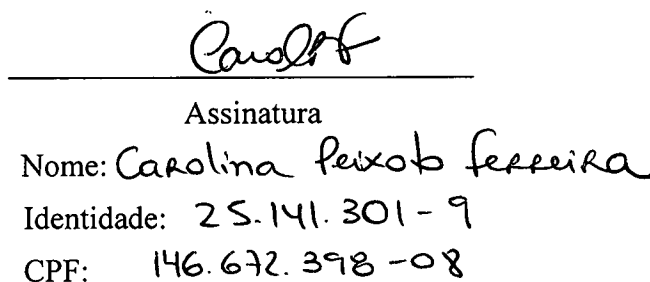 Assinatura
Nome: Carolina Peixoto Ferreira
Identidade: 25.141.301-9
CPF: 146.672.398-08